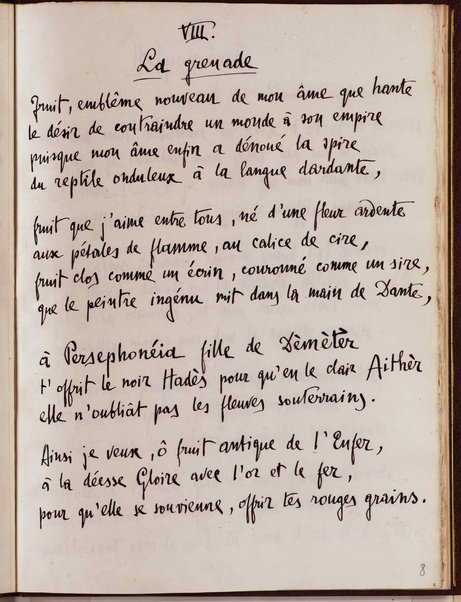 VIII.
La grenade
Fruit, emblême nouveau de mon âme que hante
le désir de contraindre un monde à son empire
puisque mon âme enfin a dénoué la spire
du reptile onduleux à la langue dardante,
fruit que j'aime entre tous, né d'une fleur ardente
aux pétales de flamme, au calice de cire,
fruit clos comme un écrin, couronné comme un sire,
que le peintre ingénu mit dans la main de Dante,
à Persephonéia fille de Dèmètèr
t'offrit le noir Hadès pour qu'en le clair Aithèr
elle n'oubliât pas les fleuves souterrains.
Ainsi je veux, ô fruit antique de l'Enfer,
à la déesse Gloire avec l'or et le fer,
pour qu'elle se souvienne, offrir tes rouges grains.
8